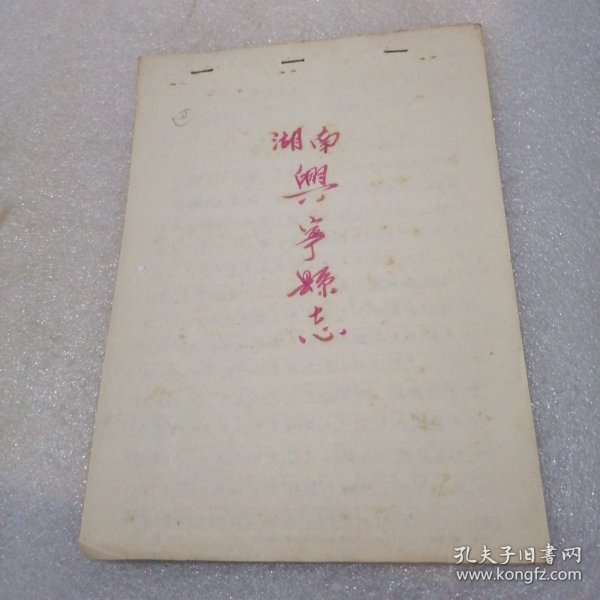 湖南
興寧縣志
孔夫子旧書网
www.kongfz.com